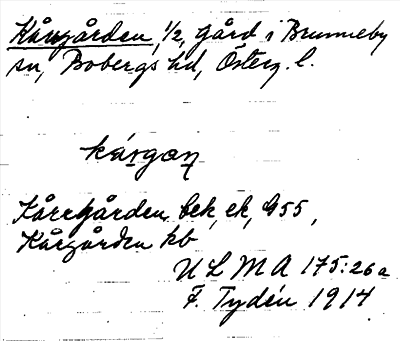 Kårgården, 1/2, gård i Brunneby
sn, Bobergs hd, Österg. l.
kårgan
Kårregården bek, ek, G55,
Kårgården kb
ULMA 175:26a
F. Tydén 1914